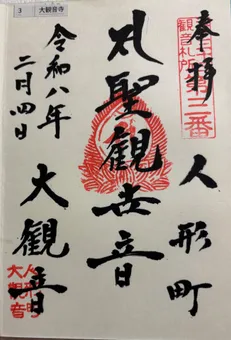 3 大観音寺
奉拝
第三番
観音札所
人形町
聖観世音
令和八年
二月四日
大観音
人形町
大観音